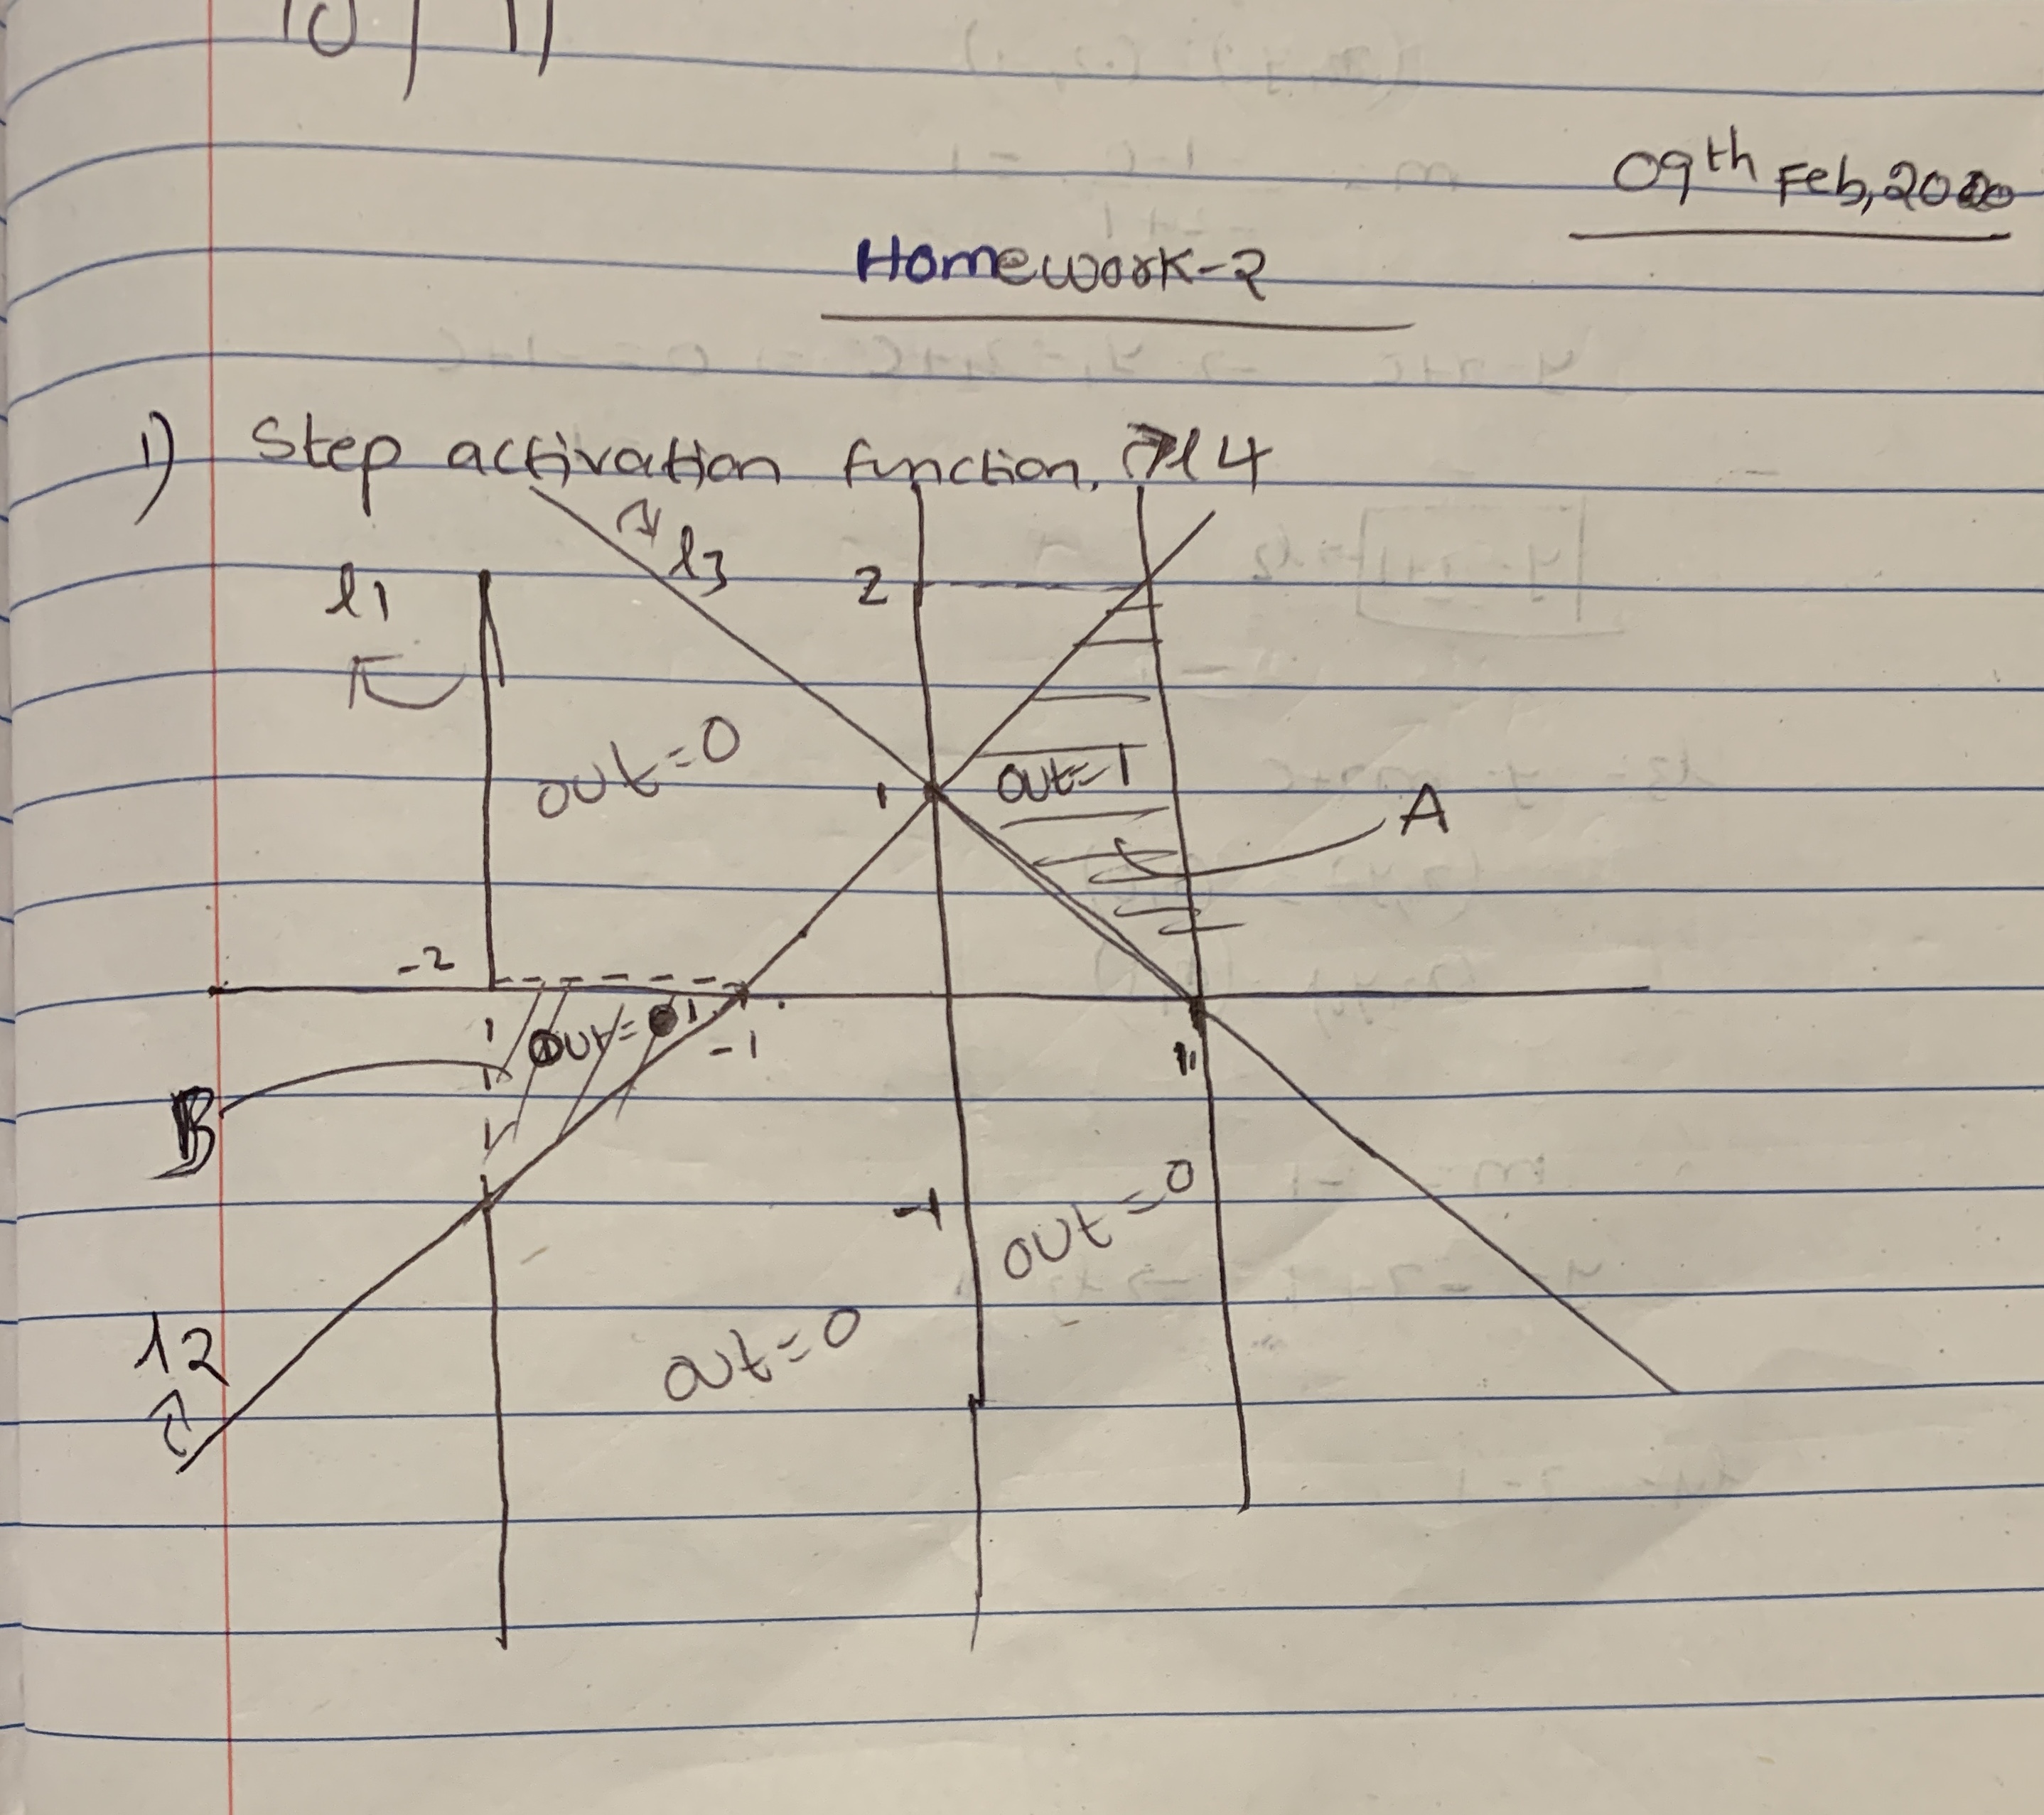 10/11
09th Feb, 2020
Homework-2
1) Step activation function. l4
l3
l1
2
out=0
1
out=1
A
-2
out=1
-1
1
B
-1
out=0
l2
out=0